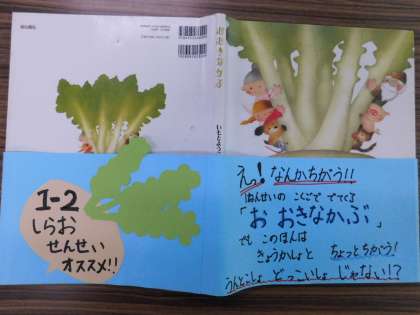 おおきなかぶ
いもとようこ
1-2
しらお
せんせい
オススメ!!
えっ! なんかちがう!!
1ねんせいの こくごで でてくる
「おおきなかぶ」
でも このほんは
きょうかしょと ちょっとちがう!
うんとこしょ どっこいしょ じゃない!?